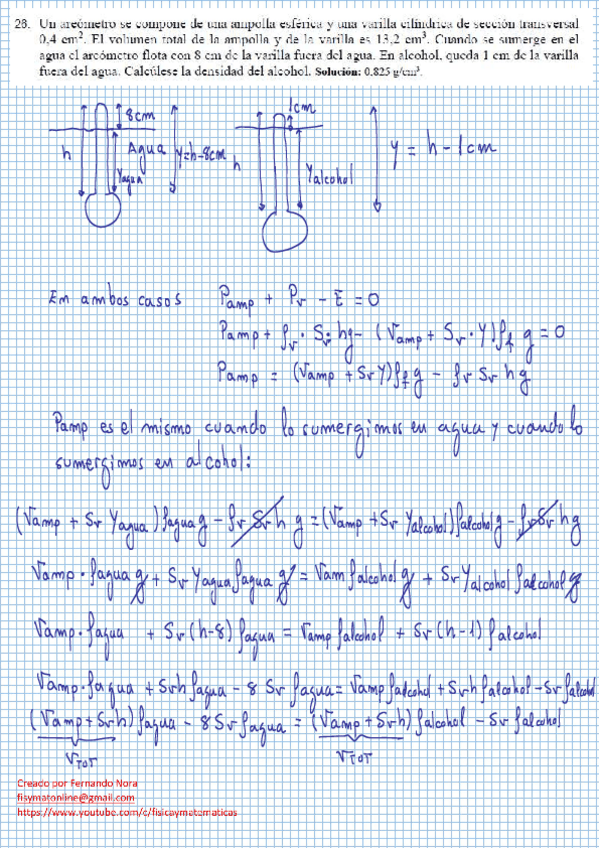 28. Un areómetro se compone de una ampolla esférica y una varilla cilíndrica de sección transversal
0,4 cm². El volumen total de la ampolla y de la varilla es 13,2 cm³. Cuando se sumerge en el
agua el areómetro flota con 8 cm de la varilla fuera del agua. En alcohol, queda 1 cm de la varilla
fuera del agua. Calcúlese la densidad del alcohol. Solución: 0,825 g/cm³.
8cm
h
Agua
Yagua
Y=h-8cm
1cm
h
Yalcohol
Y = h - 1cm
En ambos casos Pamp + Pv - E = 0
Pamp + ρv · Sv · hg - (Vamp + Sv · Y)ρf g = 0
Pamp = (Vamp + Sv Y)ρf g - ρv Sv h g
Pamp es el mismo cuando lo sumergimos en agua y cuando lo
sumergimos en alcohol:
(Vamp + Sv Yagua) ρagua g - ρv Sv h g = (Vamp + Sv Yalcohol) ρalcohol g - ρv Sv h g
Vamp · ρagua g + Sv Yagua ρagua g = Vam ρalcohol g + Sv Yalcohol ρalcohol g
Vamp · ρagua + Sv (h-8) ρagua = Vamp ρalcohol + Sv (h-1) ρalcohol
Vamp · ρagua + Svh ρagua - 8 Sv ρagua = Vamp ρalcohol + Svh ρalcohol - Sv ρalcohol
(Vamp + Svh) ρagua - 8 Sv ρagua = (Vamp + Svh) ρalcohol - Sv ρalcohol
VTOT VTOT
Creado por Fernando Nora
fisymatonline@gmail.com
https://www.youtube.com/c/fisicaymatematicas